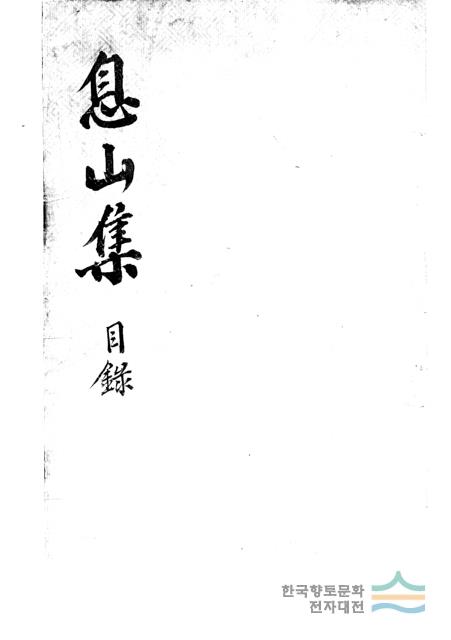 息山集
目錄
한국향토문화
전자대전